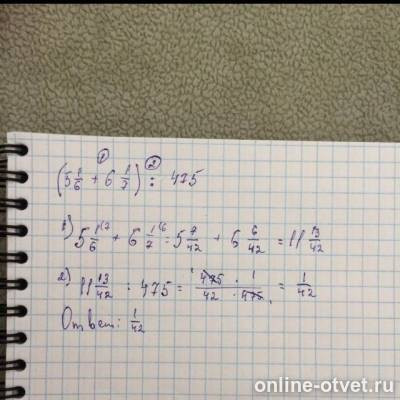 ① ②
(5 1/6 + 6 1/7) : 475
1) 5 1/6 (7 + 6 1/7 (6 = 5 7/42 + 6 6/42 = 11 13/42
2) 11 13/42 : 475 = 475 · 1 / 42 · 475 = 1/42
Ответ: 1/42
online-otvet.ru